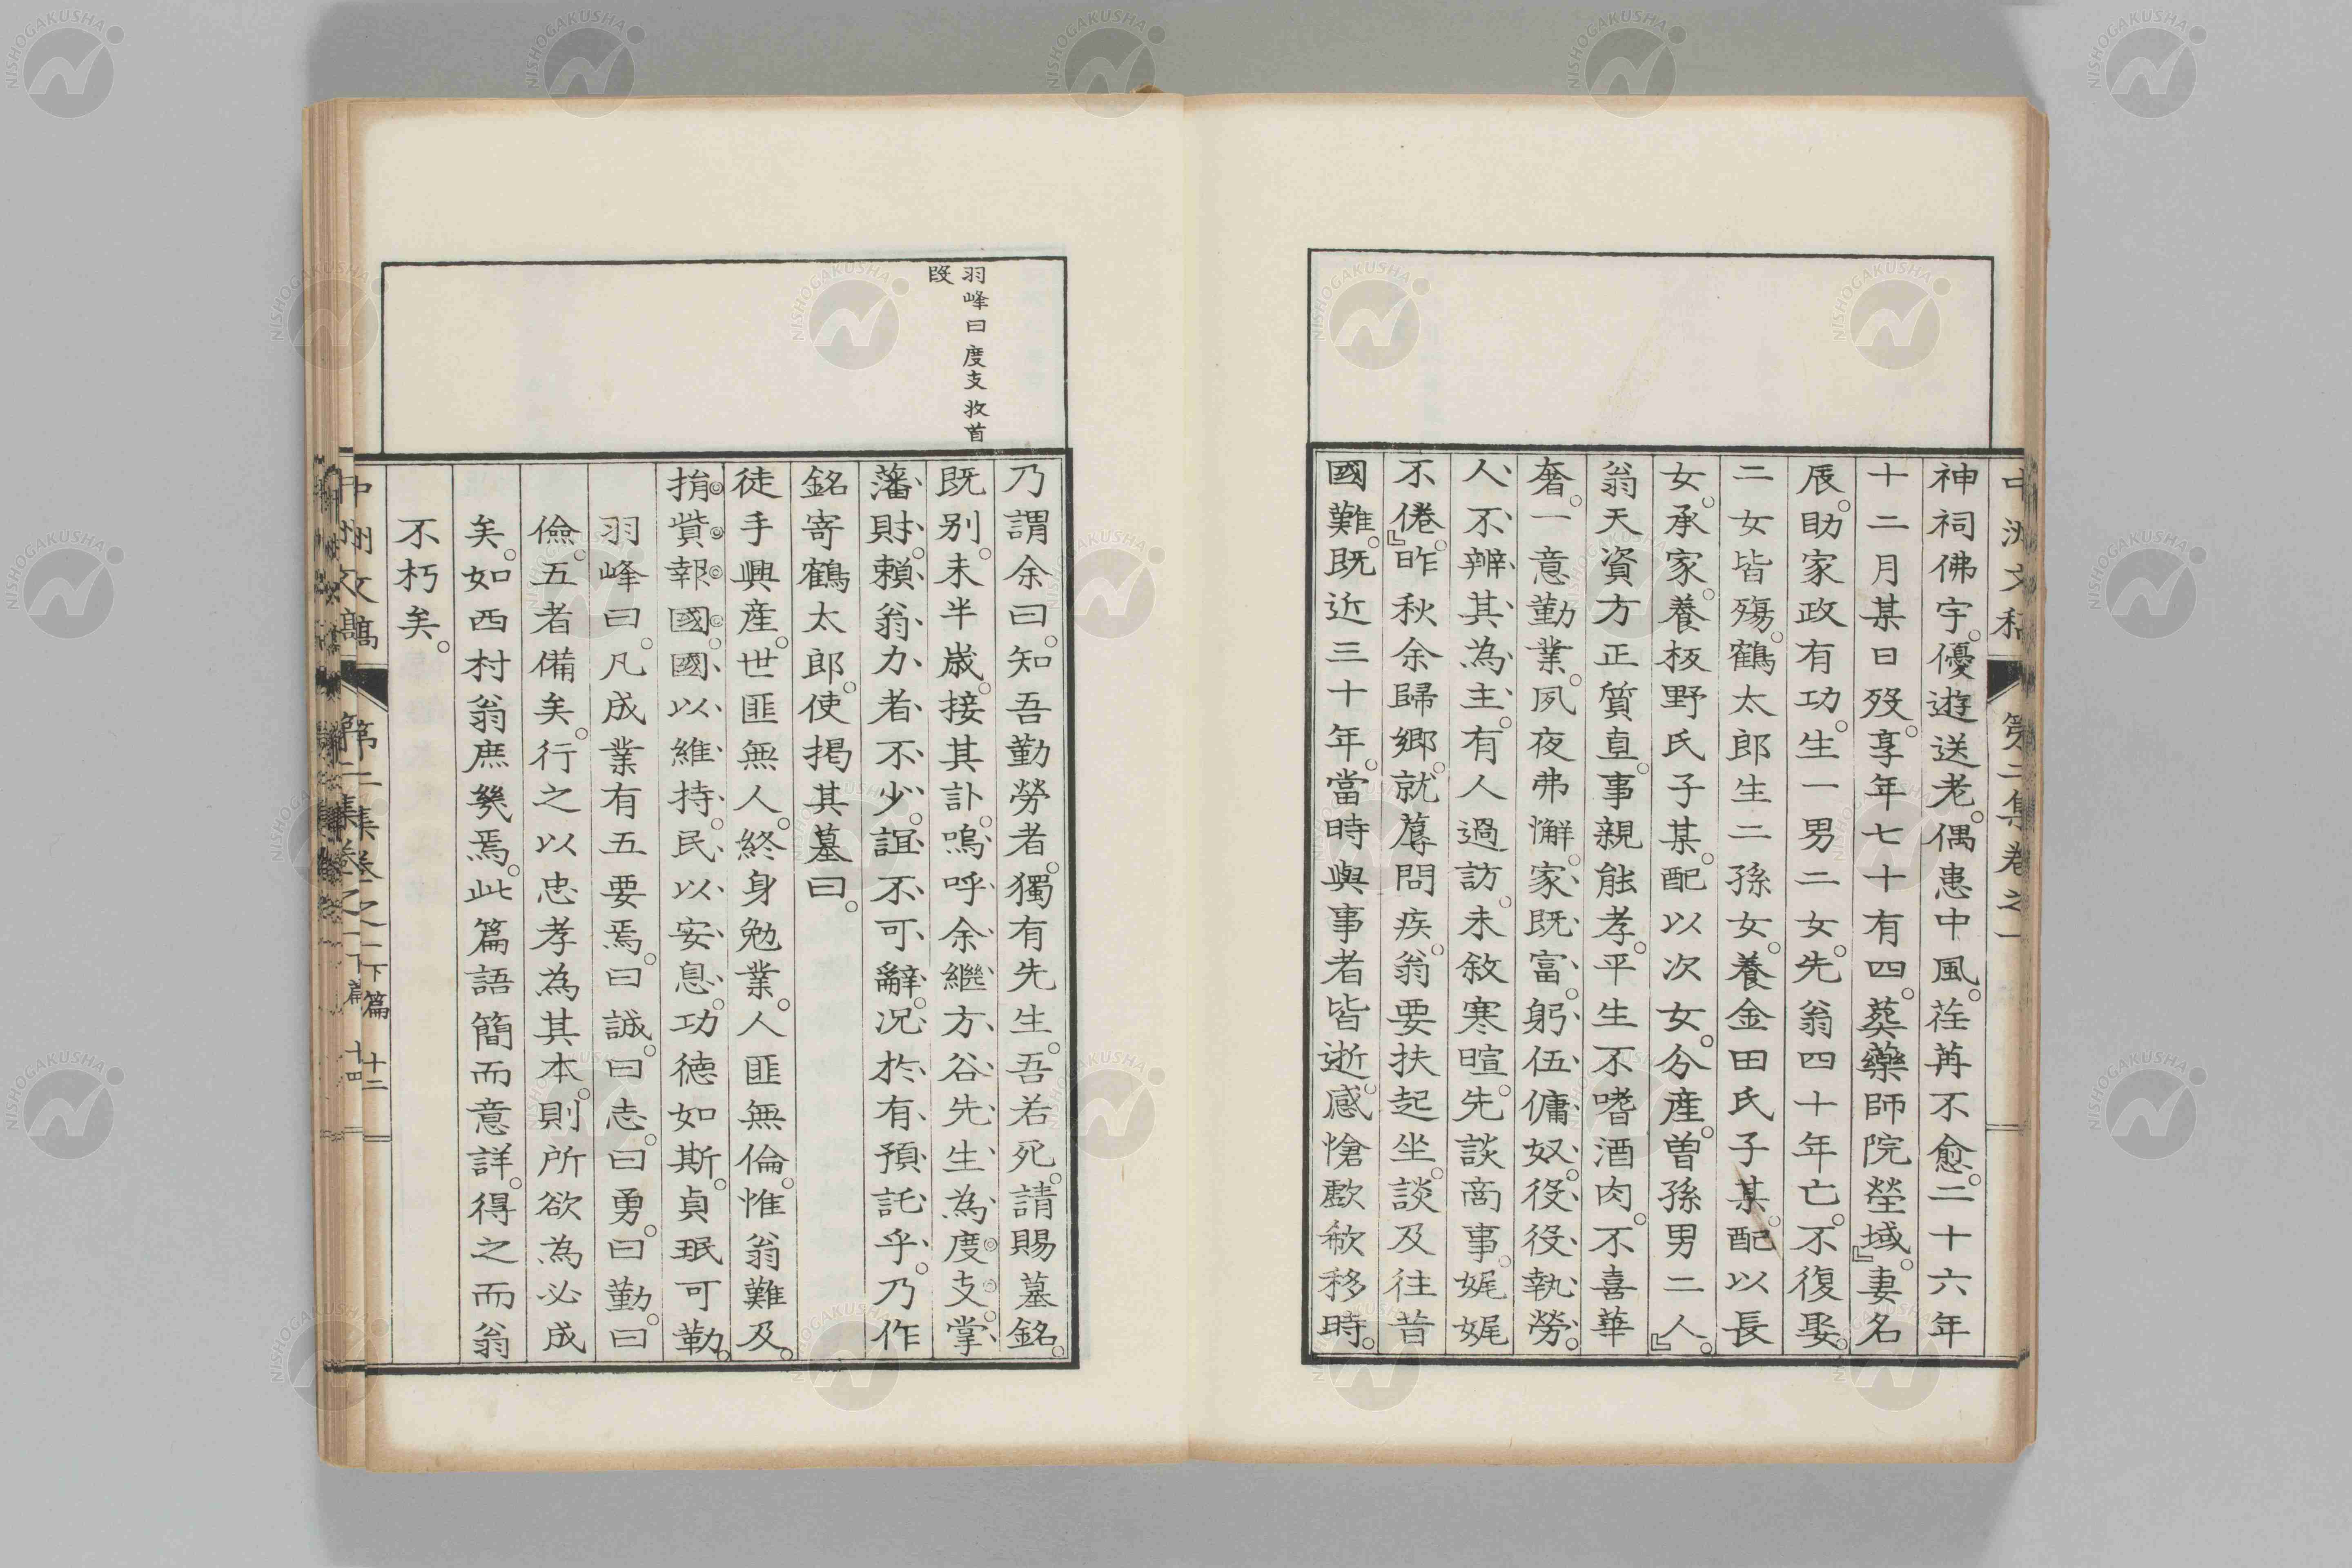 神祠佛宇。優遊送老。偶患中風。荏苒不愈。二十六年
十二月某日歿。享年七十有四。葬藥師院塋域。』妻名
辰。助家政有功。生一男二女。先翁四十年亡。不復娶。
二女皆殤。鶴太郎生二孫女。養金田氏子某。配以長
女。承家。養板野氏子某。配以次女。分產。曽孫男二人。』
翁天資方正質直。事親能孝。平生不嗜酒肉。不喜華
奢。一意勤業。夙夜弗懈。家既富。躬伍傭奴。役役執勞。
人不辨其為主。有人過訪。未敘寒暄。先談商事。娓娓
不倦。』昨秋余歸郷。就蓐問疾。翁要扶起坐。談及往昔
國難。既近三十年。當時與事者皆逝。感愴歔欷移時。
中洲文稿 第二集卷之一
羽峰曰度支收首
段
乃謂余曰。知吾勤勞者。獨有先生。吾若死。請賜墓銘。
既别。未半歳。接其訃。嗚呼余繼方谷先生為度支。掌
藩財。賴翁力者不少。誼不可辭。况於有預託乎。乃作
銘寄鶴太郎。使掲其墓曰。
徒手興産。世匪無人。終身勉業。人匪無倫。惟翁難及。
捐貲報國。國以維持。民以安息。功徳如斯。貞珉可勒。
羽峰曰。凡成業有五要焉。曰誠。曰志。曰勇。曰勤。曰
儉。五者備矣。行之以忠孝為其本。則所欲為必成
矣。如西村翁庶幾焉。此篇語簡而意詳。得之而翁
不朽矣。
中洲文稿 第二集卷之一 下篇 十二